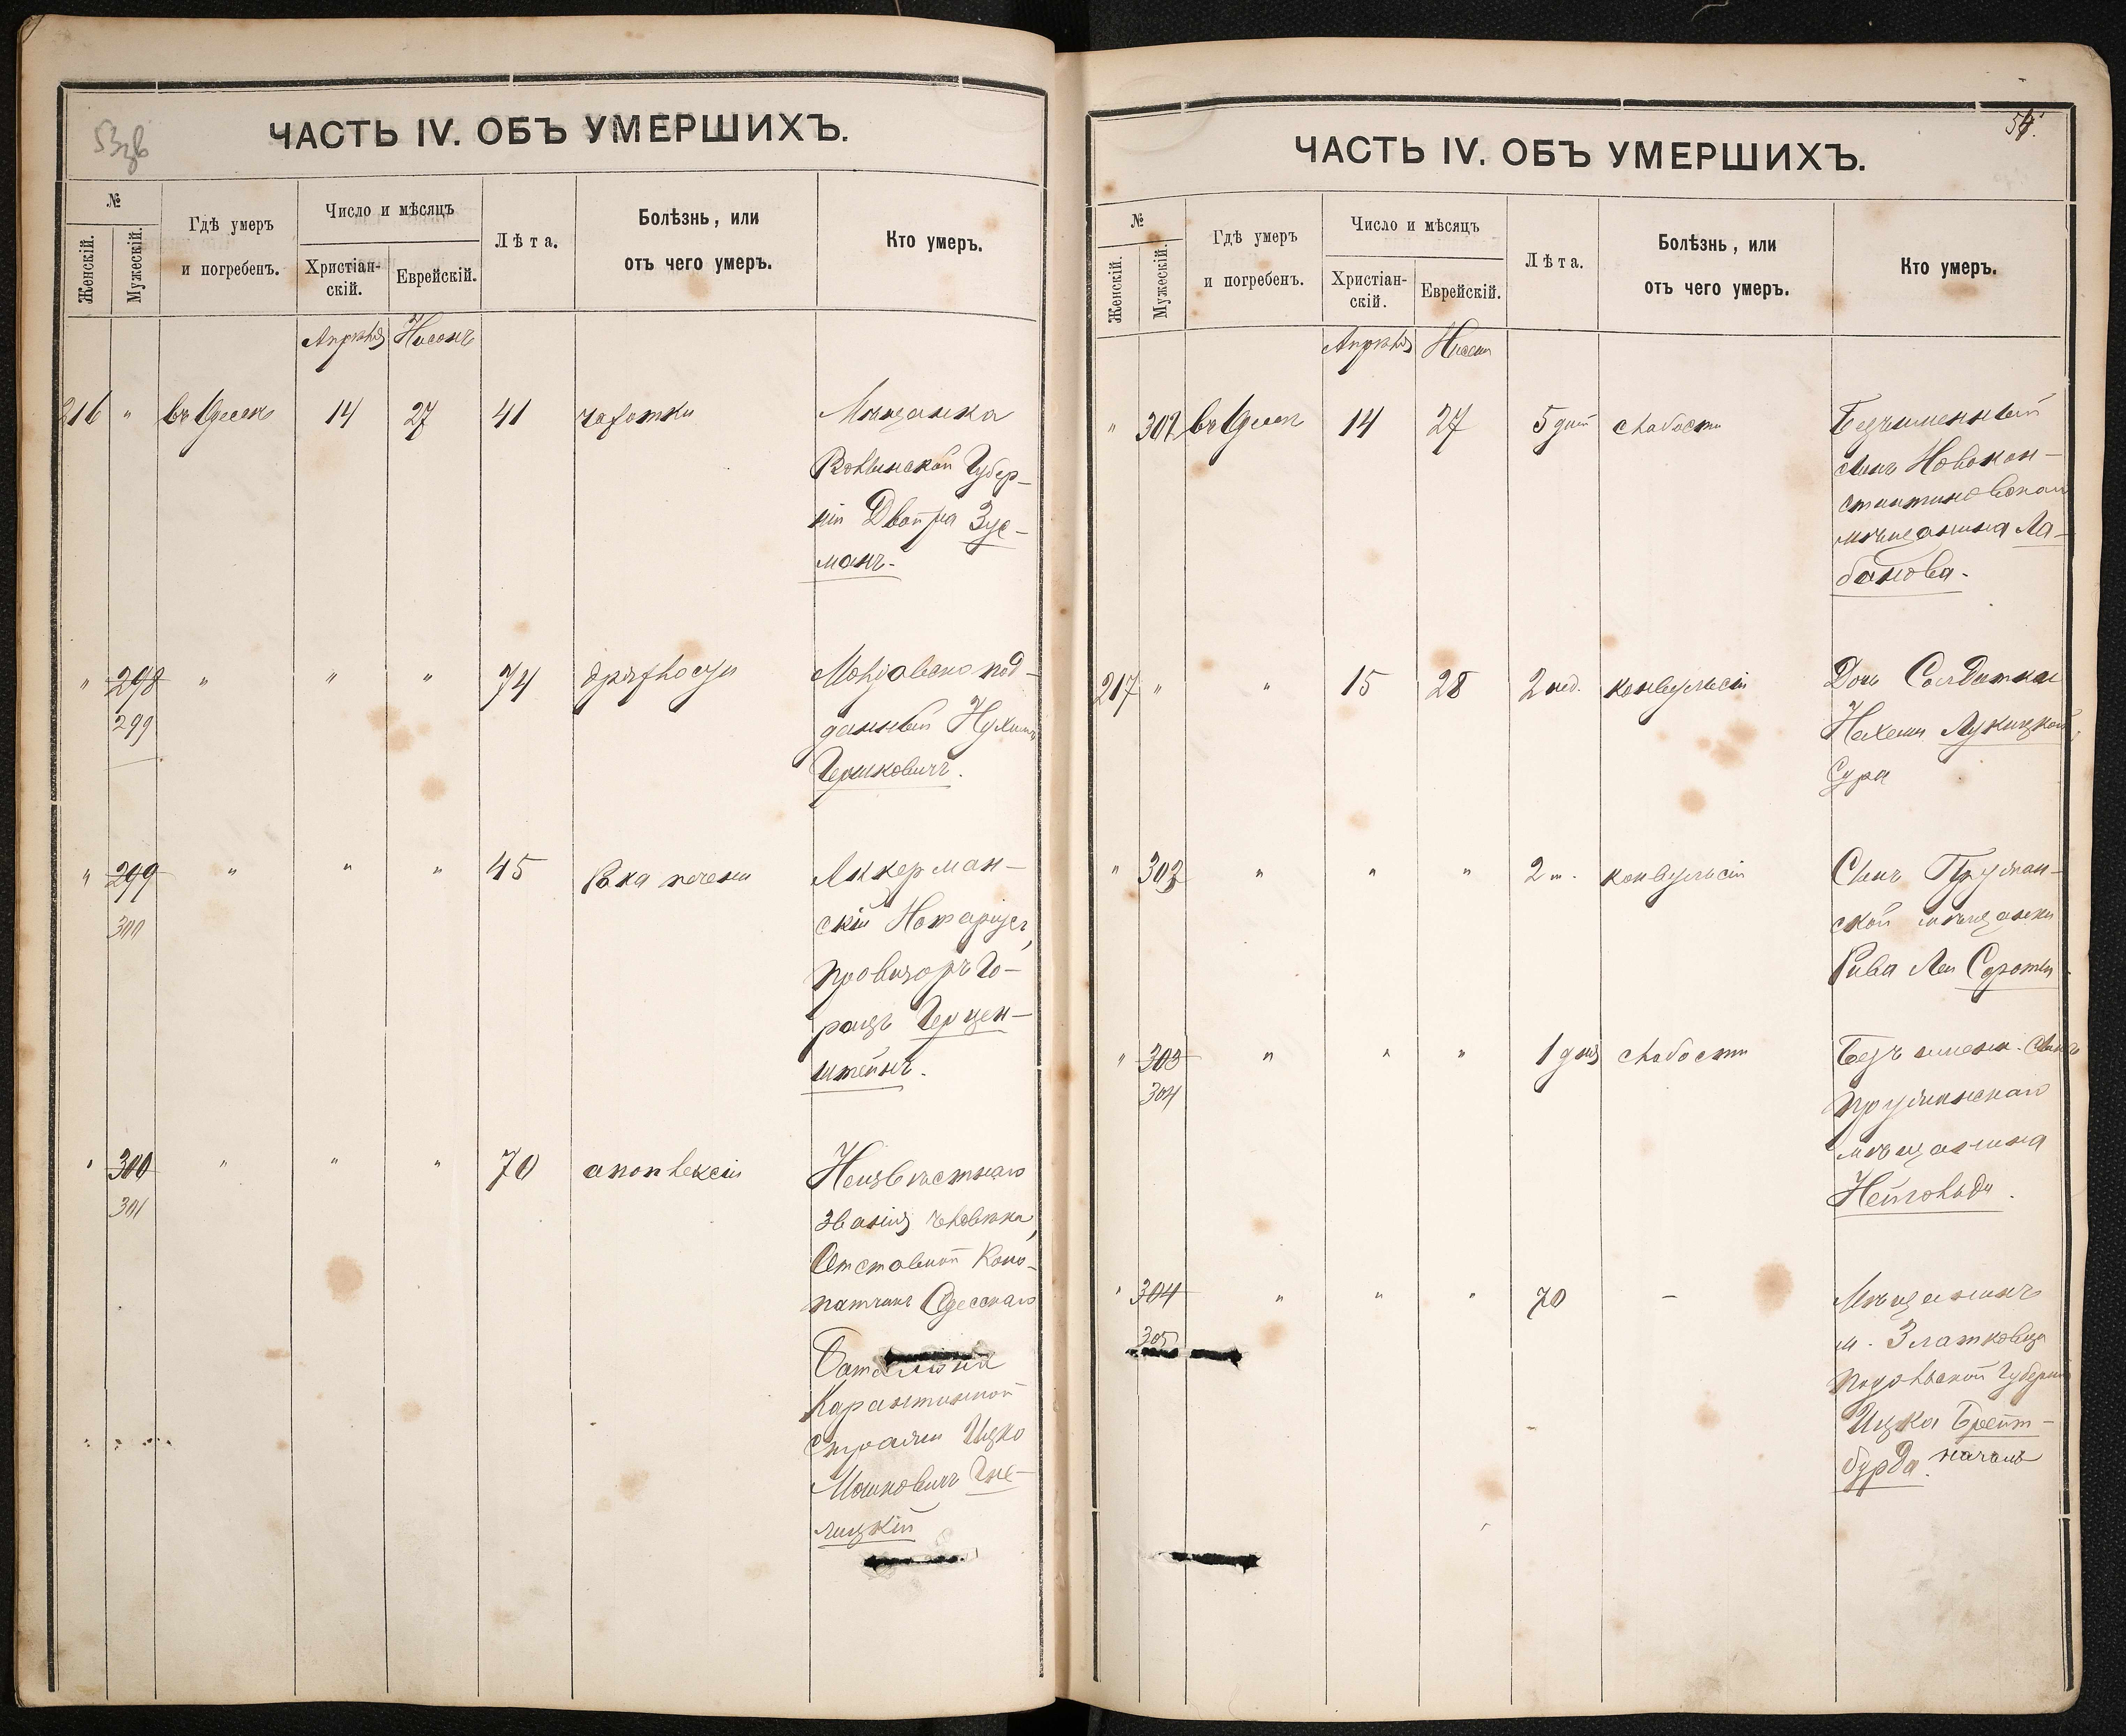 53об
ЧАСТЬ IV. ОБЪ УМЕРШИХЪ.
№
Женскій.
Мужескій.
Гдѣ умеръ
и погребенъ.
Число и мѣсяцъ
Христіан-
скій.
Еврейскій.
Лѣта.
Болѣзнь, или
отъ чего умеръ.
Кто умеръ.
Апрѣля Нисонъ
216 " въ Одессѣ 14 27 41 чахотки Мѣщанка
Волынской Губер-
ніи Двойра Зус-
манъ.
" 298 " " " 74 дряхлости Молдавско под-
299 данный Нухимъ
Гершковичъ.
" 299 " " " 45 Рака печени Аккерман-
300 скій Нотаріусъ,
провизоръ Го-
рацъ Герцен-
штейнъ.
" 300 " " " 70 апоплексіи Неизвѣстнаго
301 званія человѣка,
Отставной Коно-
патчикъ Одесскаго
Баталіона
Карантинной
стражи Ицко
Мошковичъ
лицкій
54.
ЧАСТЬ IV. ОБЪ УМЕРШИХЪ.
№
Женскій.
Мужескій.
Гдѣ умеръ
и погребенъ.
Число и мѣсяцъ
Христіан-
скій.
Еврейскій.
Лѣта.
Болѣзнь, или
отъ чего умеръ.
Кто умеръ.
Апрѣля Нисонъ
" 302 въ Одессѣ 14 27 5 дней слабости Безъименный
сынъ Новокон-
стантиновскаго
мѣщанина Ла-
банова.
217 " " 15 28 2 нед. конвульсіи Дочь Солдатки
Нехамы Лукицкой
Сура
" 303 " " " 2 м. конвульсіи Сынъ Пружан-
ской мѣщанки
Рива Леи
" 303 " " " 1 дня слабости Безъ имени сынъ
304 пружанскаго
мѣщанина
Нейгольда.
" 304 " " " 70 — Мѣщанинъ
305 м. Златковца
Подольской Губерніи
Ицка Брейт-
бурда.